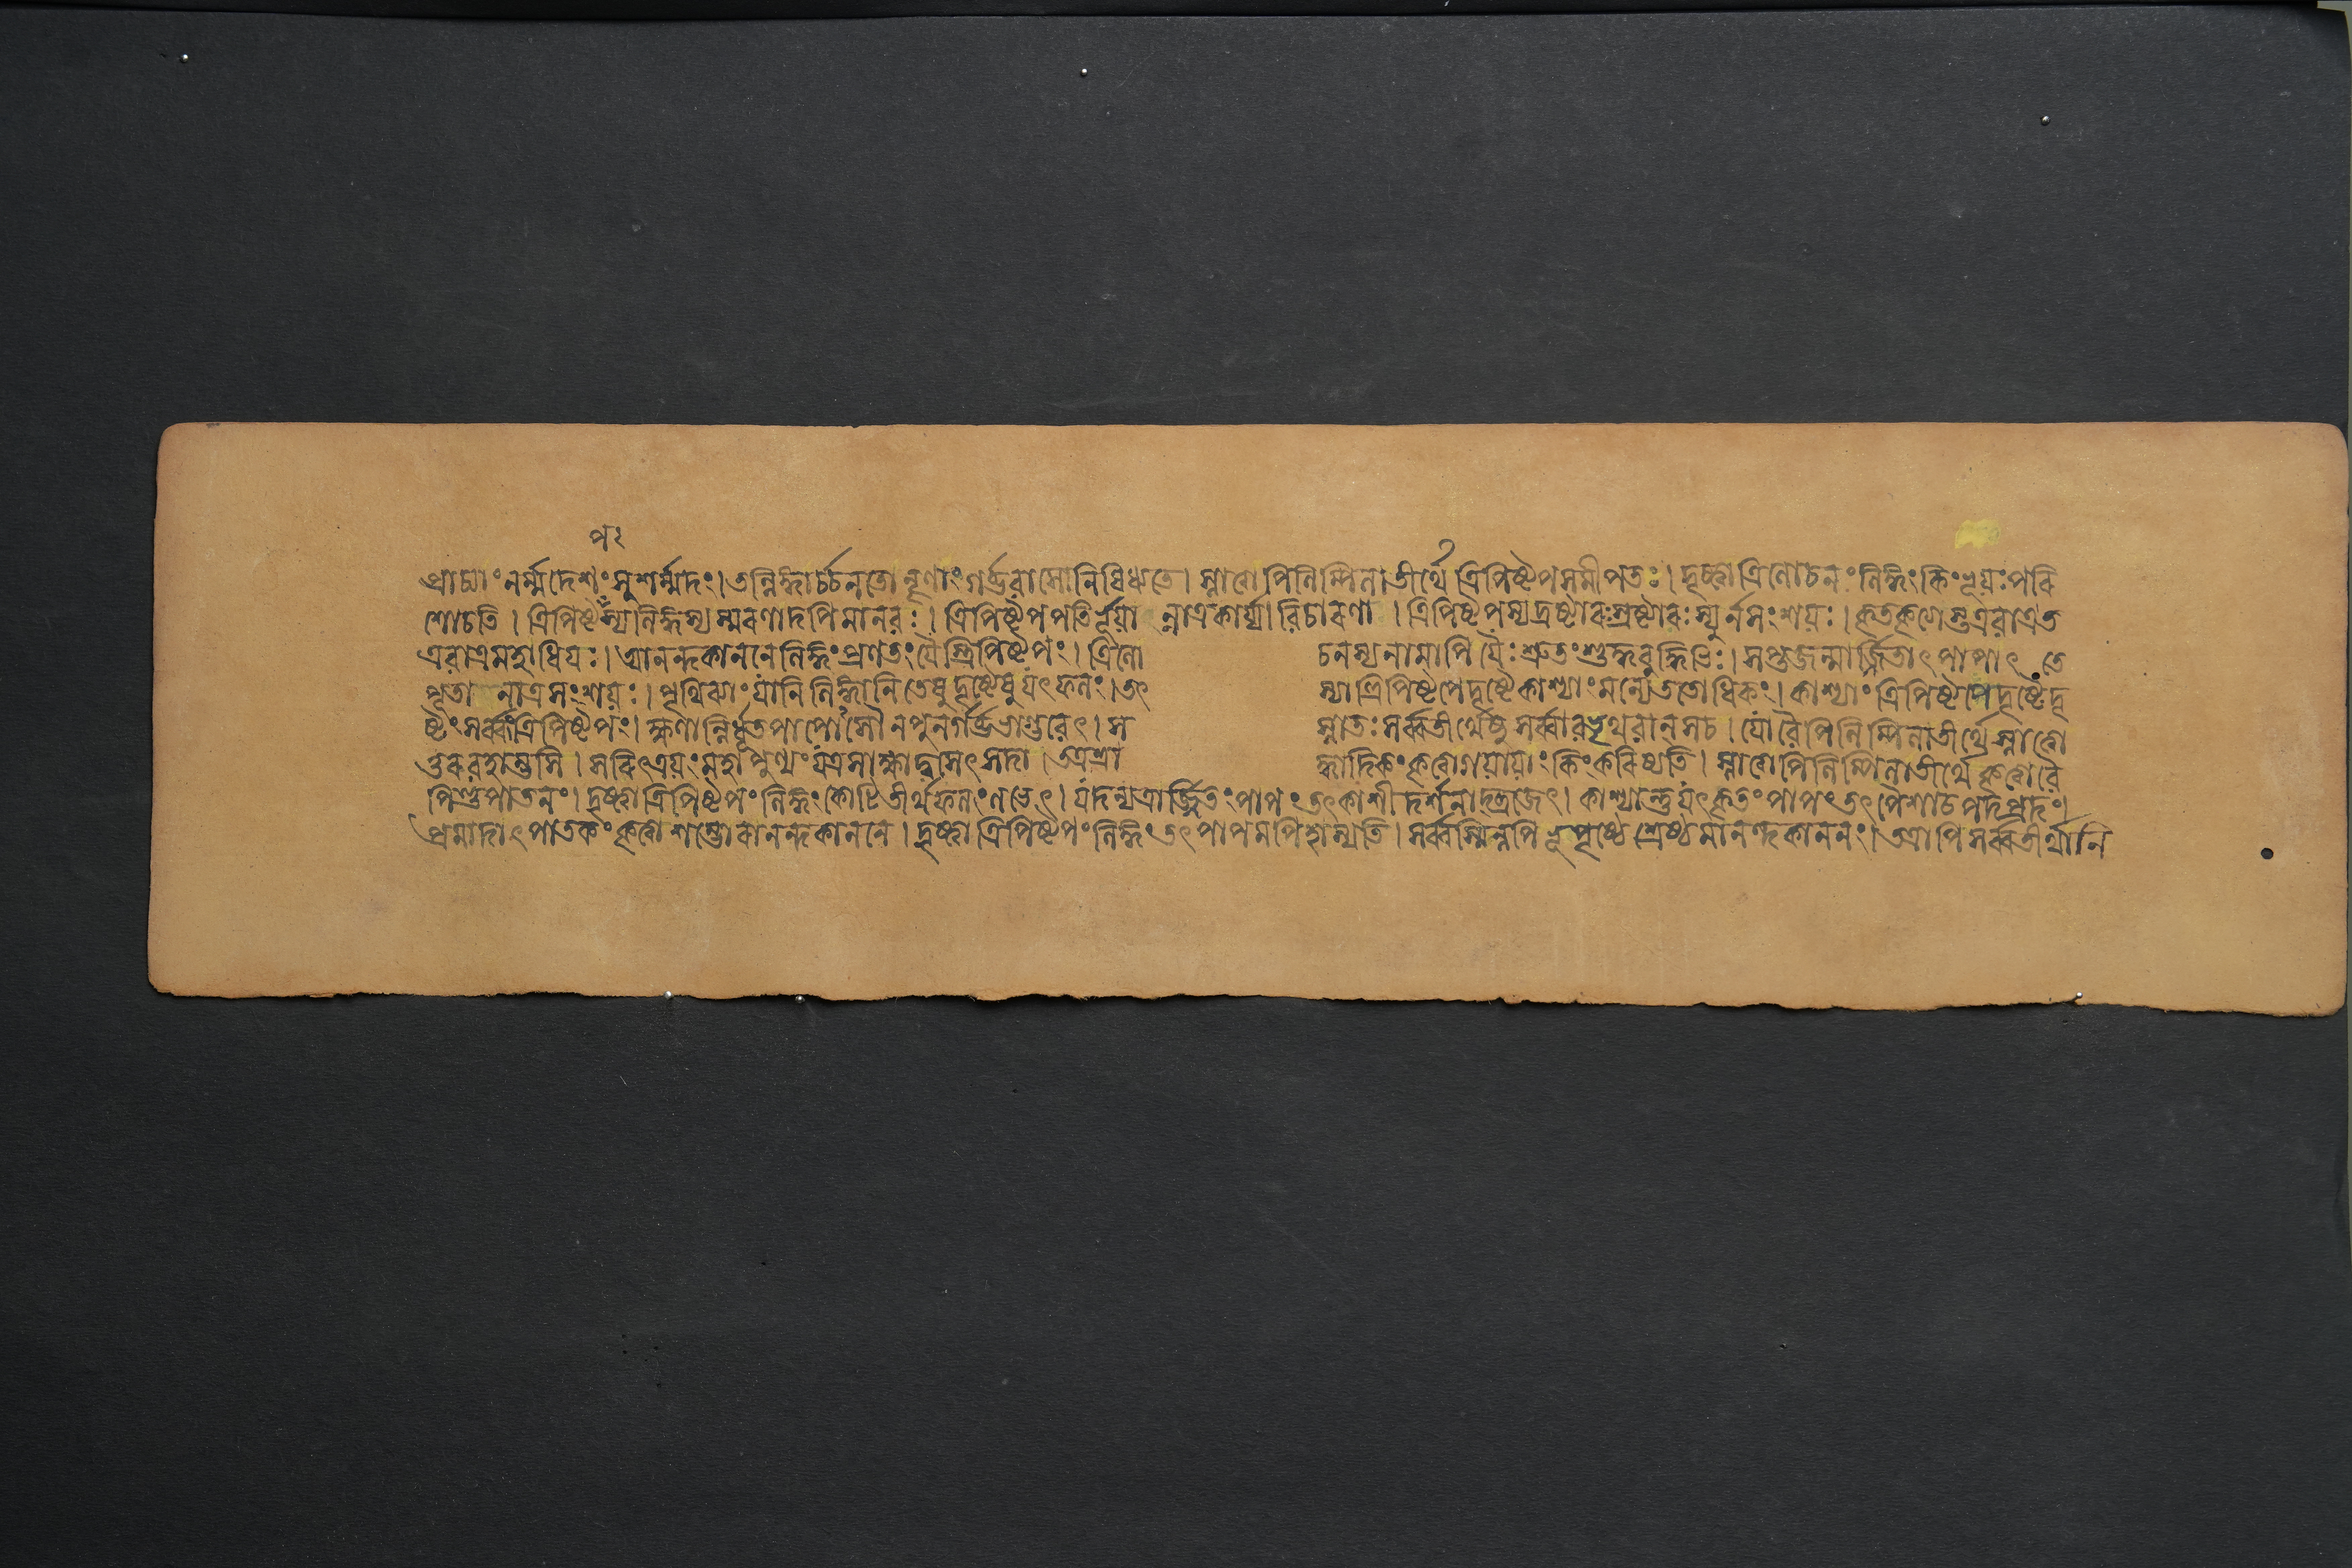 প২
প্রাচ্যাং নর্ম্মদেশং সুশর্ম্মদং। তল্লিঙ্গার্চ্চনতো নৄণাং গর্ব্ভবাসো নিষিধ্যতে। স্নাত্বা পিলিপ্পিলাতীর্থে ত্রিপিষ্টপসমীপতঃ। দৃষ্ট্বা ত্রিলোচনং লিঙ্গং কিং ভূয়ঃ পরি
শোচতি। ত্রিপিষ্টপস্য লিঙ্গস্য স্মরণাদপি মানবঃ। ত্রিপিষ্টপপতির্ভূয়ান্নাত্র কার্য্যা বিচারণা। ত্রিপিষ্টপস্য দ্রষ্টারঃ স্রষ্টারঃ স্যুর্ন সংশয়ঃ। কৃতকৃত্যাস্ত এবাত্র ত
এবাত্র মহাধিয়ঃ। আনন্দকাননে লিঙ্গং প্রণতং যৈস্ত্রিপিষ্টপং। ত্রিলোচনস্য নামাপি যৈঃ শ্রুতং শুদ্ধবুদ্ধিভিঃ। সপ্তজন্মার্জ্জিতাৎ পাপাৎ তে
পূতা নাত্র সংশয়ঃ। পৃথিব্যাং যানি লিঙ্গানি তেষু দৃষ্টেষু যৎ ফলং। তৎ স্যাত্ত্রিপিষ্টপে দৃষ্টে কাশ্যাং মন্যে ততোধিকং। কাশ্যাং ত্রিপিষ্টপে দৃষ্টে দৃ
ষ্টং সর্ব্বং ত্রিপিষ্টপং। ক্ষণান্নির্ধূতপাপোসৌ ন পুনর্গর্ব্ভভাগ্ভবেৎ। স স্নাতঃ সর্ব্বতীর্থেষু সর্ব্বাবভৃথবান স চ। যো বৈ পিলিপ্পিলাতীর্থে স্নাত্বো
ত্তরবহাম্ভসি। সরিৎত্রয়ং মহাপুণ্যং যত্র সাক্ষাদ্বসেৎ সদা। তত্র শ্রাদ্ধাদিকং কৃত্বা গয়ায়াং কিং করিষ্যতি। স্নাত্বা পিলিপ্পিলাতীর্থে কৃত্বা বৈ
পিণ্ডপাতনং। দৃষ্ট্বা ত্রিপিষ্টপং লিঙ্গং কোটিতীর্থফলং লভেৎ। যদন্যত্রার্জ্জিতং পাপং তৎ কাশীদর্শনাদ্ব্রজেৎ। কাশ্যান্তু যৎ কৃতং পাপং তৎ পৈশাচপদপ্রদং।
প্রমাদাৎ পাতকং কৃত্বা শম্ভোরানন্দকাননে। দৃষ্ট্বা ত্রিপিষ্টপং লিঙ্গং তৎ পাপমপি হাস্যতি। সর্ব্বস্মিন্নপি ভূপৃষ্ঠে শ্রেষ্ঠমানন্দকাননং। তত্রাপি সর্ব্বতীর্থানি